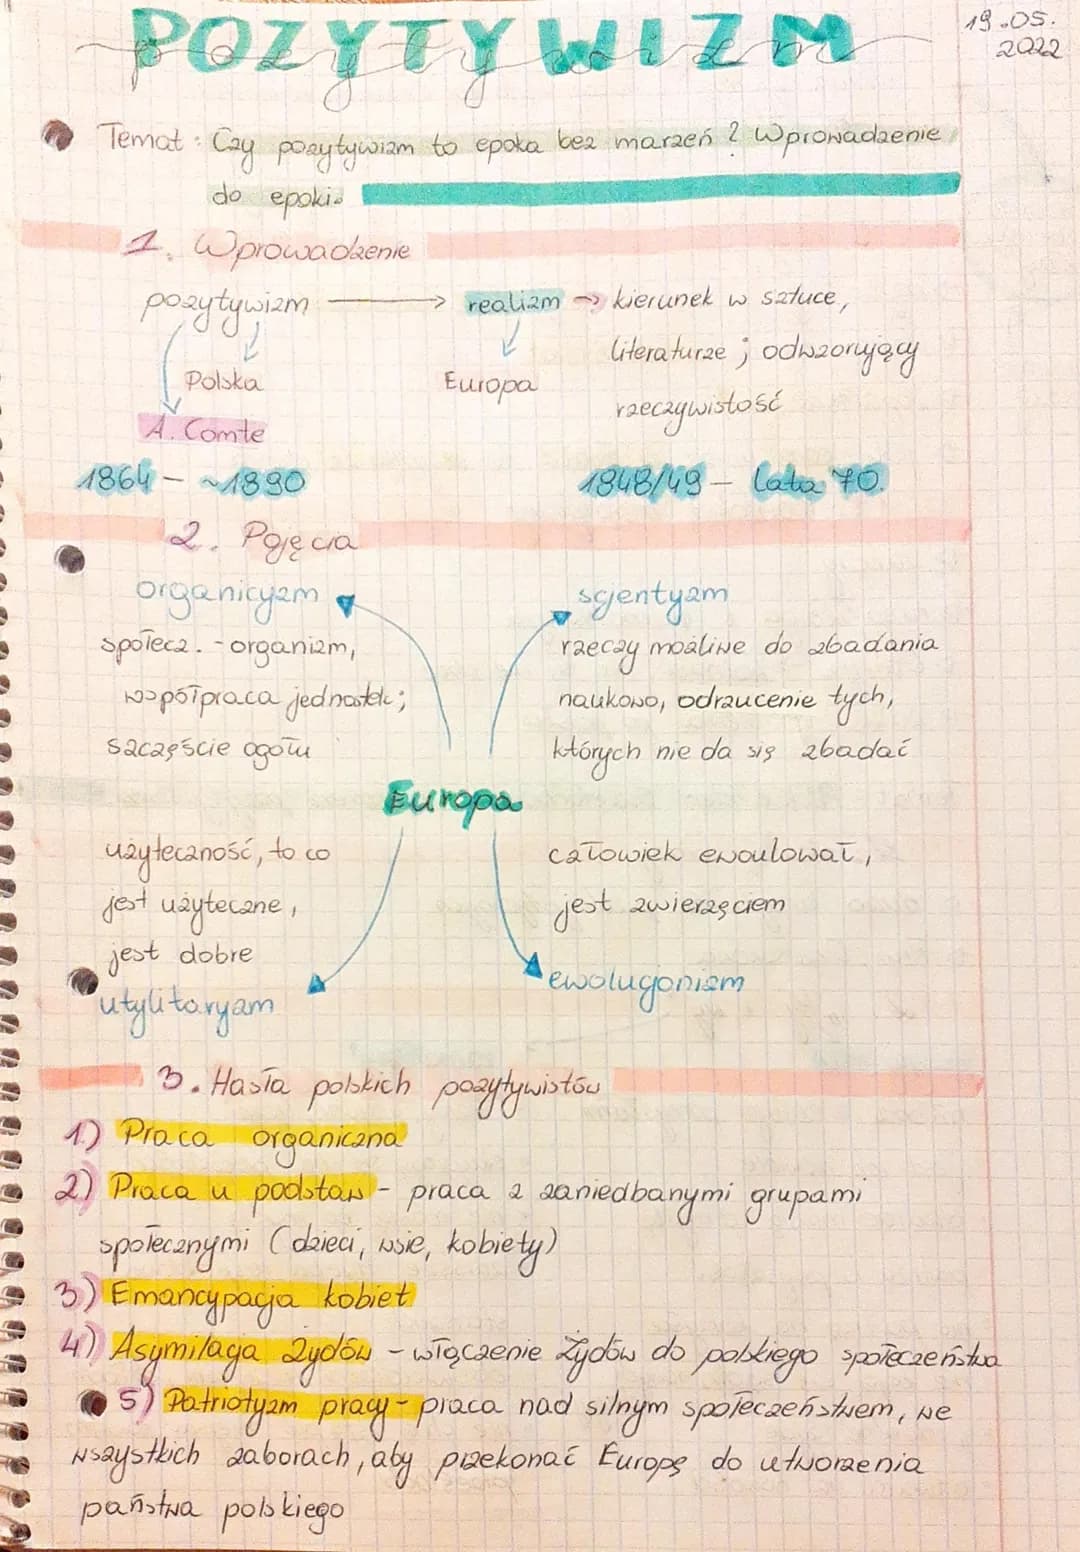 POZYTYWIZM
pozytywizm
19.05.
2022
Temat: Czy pozytywizm to epoka bez marzeń? Wprowadzenie
do epoki.
1. Wprowadzenie
pozytywizm → realizm → kierunek w sztuce,
literaturze; odwzorujący
Polska Europa
rzeczywistość
A. Comte
1864 - ~1890 1848/49 - lata 70.
2. Pojęcia
organicyzm
społecz. - organizm,
współpraca jednostek;
szczęście ogółu
scjentyzm
rzeczy możliwe do zbadania
naukowo, odrzucenie tych,
których nie da się zbadać
Europa
użyteczność, to co
jest użyteczne,
jest dobre
utylitaryzm
człowiek ewoulował,
jest zwierzęciem
ewolucjonizm
3. Hasła polskich pozytywistów
1.) Praca organiczna
2) Praca u podstaw - praca z zaniedbanymi grupami
społecznymi (dzieci, wsie, kobiety)
3) Emancypacja kobiet
4) Asymilacja Żydów - włączenie Żydów do polskiego społeczeństwa
5) Patriotyzm pracy - praca nad silnym społeczeństwem, we
wszystkich zaborach, aby przekonać Europę do utworzenia
państwa polskiego